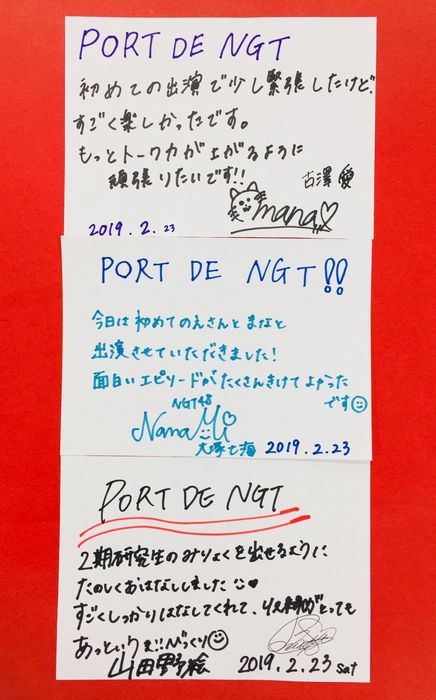 PORT DE NGT
初めての出演で少し緊張したけど、
すごく楽しかったです。
もっとトーク力が上がるように
頑張りたいです!!
古澤 愛
mana♡
2019.2.23
PORT DE NGT!!
今日は初めてのえさんとまなと
出演させていただきました!
面白いエピソードがたくさんきけてよかった
です☺
NGT48
Nanami
大塚七海
2019.2.23
PORT DE NGT
2期研究生のみりょくを出せるように
たのしくおはなししました
すごくしっかりはなしてくれて、
とっても
あっというま!!びっくり☺
山田野絵
2019.2.23 sat